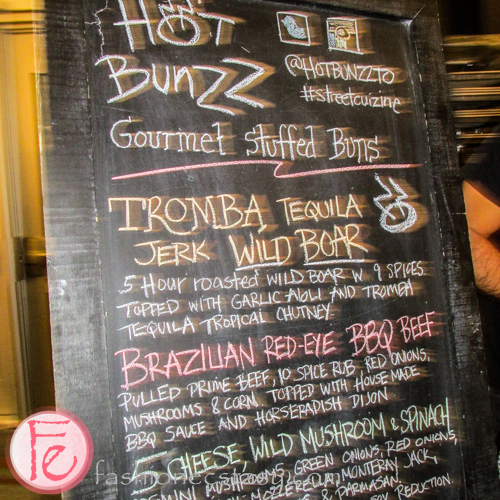 HOT
BUNZZ
@HOTBUNZZTO
#streetcuizine
Gourmet Stuffed Buns
TROMBA TEQUILA
JERK WILD BOAR
5 Hour roasted WILD BOAR W 9 SPICES
TOPPED WITH GARLIC AIOLI AND TROMBA
TEQUILA TROPICAL CHUTNEY
BRAZILIAN RED-EYE BBQ BEEF
PULLED PRIME BEEF, 10 SPICE RUB, RED ONIONS,
MUSHROOMS & CORN. TOPPED WITH HOUSE MADE
BBQ SAUCE AND HORSERADISH DIJON
CHEESE, WILD MUSHROOM & SPINACH
MUSHROOMS, GREEN ONIONS, RED ONIONS,
MONTEREY JACK,
& PARMASAN,
REDUCTION
Fe